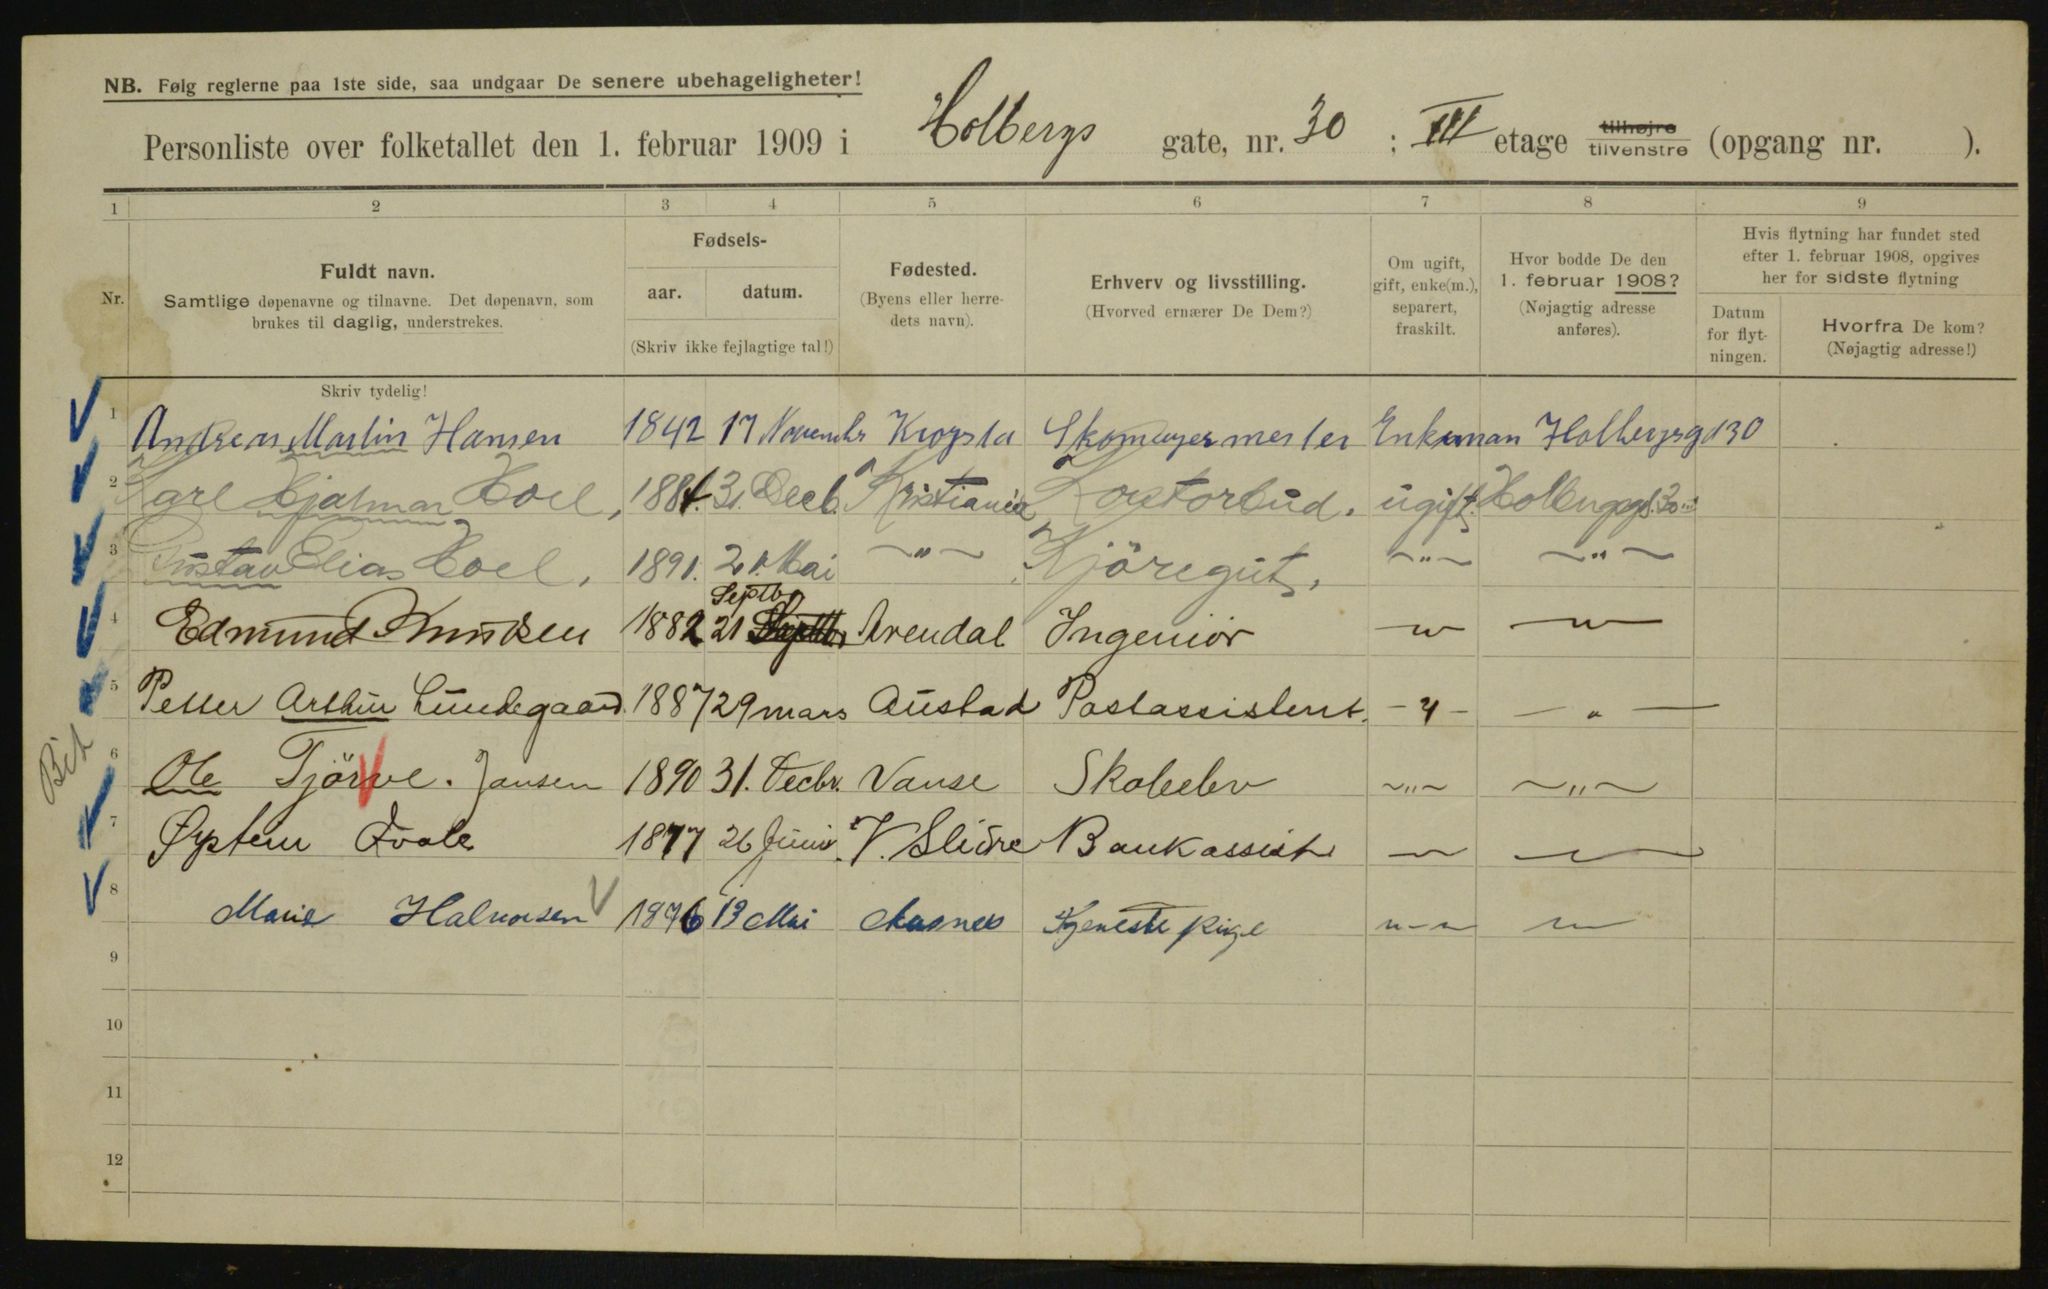 NB. Følg reglerne paa 1ste side, saa undgaar De senere ubehageligheter!
Personliste over folketallet den 1. februar 1909 i Holbergs gate, nr. 30 ; III etage tilhøjre tilvenstre (opgang nr. ).
1 2 3 4 5 6 7 8 9
Nr.
Fuldt navn.
Samtlige døpenavne og tilnavne. Det døpenavn, som
brukes til daglig, understrekes.
Fødsels-
aar. datum.
(Skriv ikke fejlagtige tal!)
Fødested.
(Byens eller herre-
dets navn).
Erhverv og livsstilling.
(Hvorved ernærer De Dem?)
Om ugift,
gift, enke(m.),
separert,
fraskilt.
Hvor bodde De den
1. februar 1908?
(Nøjagtig adresse
anføres).
Hvis flytning har fundet sted
efter 1. februar 1908, opgives
her for sidste flytning
Datum
for flyt-
ningen.
Hvorfra De kom?
(Nøjagtig adresse!)
Skriv tydelig!
1 Andreas Martin Hansen 1842 17 Novembr Krogsta Skomagermester Enkeman Holbergsgd 30
2 Karl Hjalmar Hoel, 1881. 31. Decb. Kristiania Kontorbud. ugift. Holbergsgd. 30
3 Gustav Elias Hoel, 1891. 21. Mai ~"~ Kjöregut, ~"~ ~"~
Septb
4 Edmund Knudsen 1882 21 Arendal Ingeniør ~"~ ~"~
5 Petter Arthur Lundegaard. 1887 29 mars Austad Postassistent. - " - - " -
6 Ole Tjörve. Jansen 1890 31. Decbr. Vanse Skoleelev ~"~ ~"~
7 Øystein Qvale 1877 26 Juni V. Slidre Bankassist
8 Marie Halvorsen 1876 19 Mai Tjenestepige
9
10
11
12